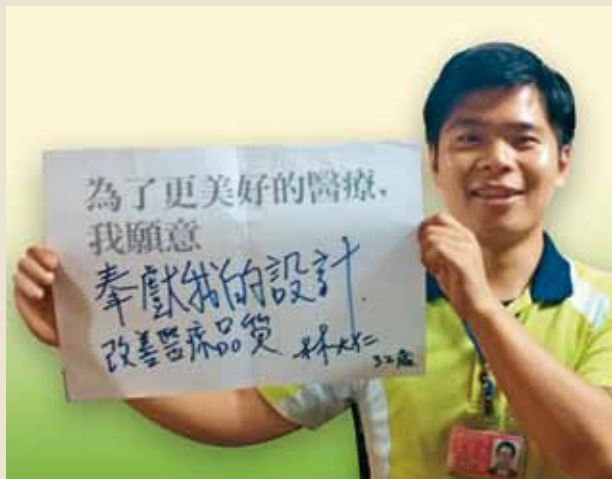 為了更美好的醫療,
我願意
奉獻我的設計.
改善醫療品質 林大仁